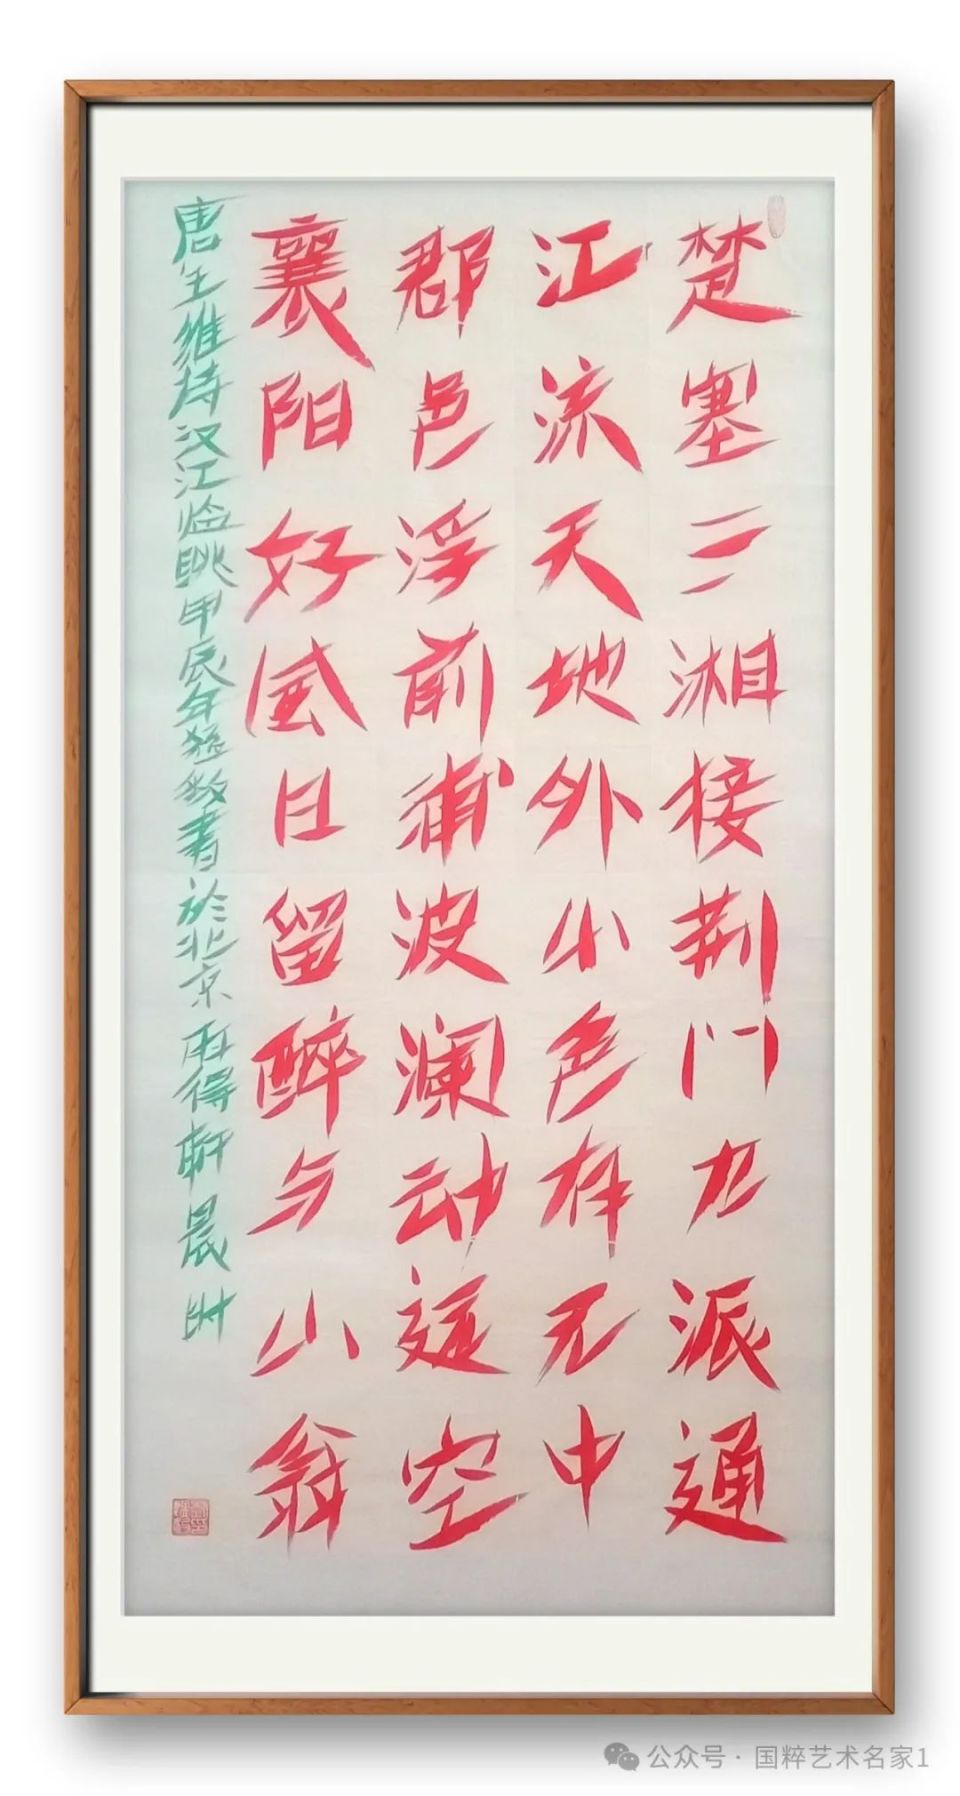 楚塞三湘接荆门九派通
江流天地外山色有无中
郡邑浮前浦波澜动远空
襄阳好风日留醉与山翁
唐王维诗汉江临眺甲辰年書於北京得軒晨时
公众号·国粹艺术名家1